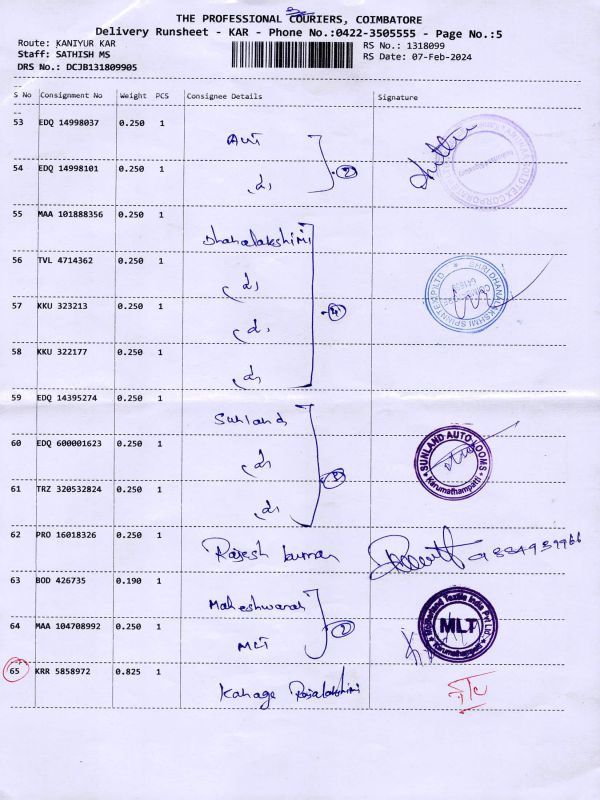 THE PROFESSIONAL COURIERS, COIMBATORE
Delivery Runsheet - KAR - Phone No.:0422-3505555 - Page No.:5
Route: KANIYUR KAR
RS No.: 1318099
Staff: SATHISH MS
RS Date: 07-Feb-2024
DRS No.: DCJB131809905
S No Consignment No Weight PCS Consignee Details Signature
53 EDQ 14998037 0.250 1
54 EDQ 14998101 0.250 1
2
55 MAA 101888356 0.250 1
Dhanalakshimi
56 TVL 4714362 0.250 1
SHRI DHANALAKSHMI SPINNTEX (P) LTD
57 KKU 323213 0.250 1
4
58 KKU 322177 0.250 1
59 EDQ 14395274 0.250 1
Sunland
60 EDQ 600001623 0.250 1
3
SUNLAND AUTO LOOMS
Karumathampatti
61 TRZ 320532824 0.250 1
62 PRO 16018326 0.250 1
Rajesh kumar
63 BOD 426735 0.190 1
Maheshwarah
64 MAA 104708992 0.250 1
MLT
2
MLT
Karumathampatti
65 KRR 5858972 0.825 1
Rajalakshimi